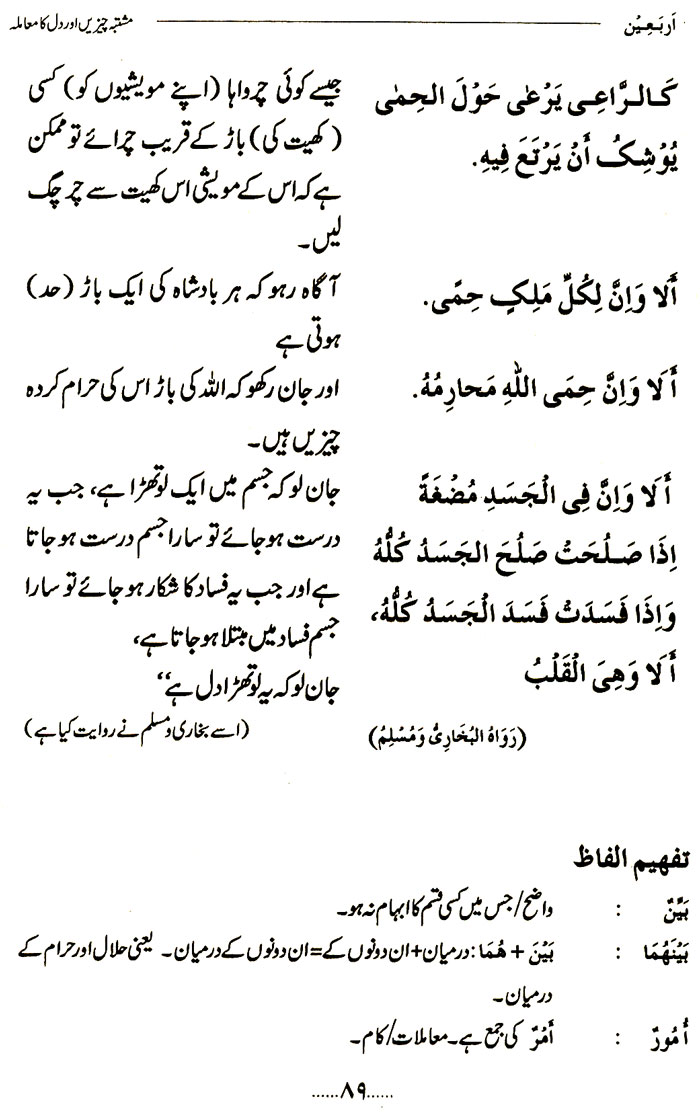 اَربَعِیْن
مشتبہ چیزیں اور دل کا معاملہ
کَالرَّاعِی یَرْعٰی حَوْلَ الحِمٰی
یُوْشِکُ أَنْ یَرْتَعَ فِیهِ.
جیسے کوئی چرواہا (اپنے مویشیوں کو) کسی
(کھیت کی) باڑ کے قریب چرائے تو ممکن
ہے کہ اس کے مویشی اس کھیت سے چر چگ
لیں۔
أَلا وَاِنَّ لِکُلِّ مَلِکٍ حِمًی.
آگاہ رہو کہ ہر بادشاہ کی ایک باڑ (حد)
ہوتی ہے
أَلا وَاِنَّ حِمَی اللّٰهِ مَحارِمُهُ.
اور جان رکھو کہ اللہ کی باڑ اس کی حرام کردہ
چیزیں ہیں۔
أَلا وَاِنَّ فِی الْجَسَدِ مُضْغَةً
اِذَا صَلُحَتْ صَلُحَ الجَسَدُ کُلُّهُ
وَاِذَا فَسَدَتْ فَسَدَ الْجَسَدُ کُلُّهُ،
أَلا وَهِیَ الْقَلْبُ
جان لو کہ جسم میں ایک لوتھڑا ہے، جب یہ
درست ہو جائے تو سارا جسم درست ہو جاتا
ہے اور جب یہ فساد کا شکار ہو جائے تو سارا
جسم فساد میں مبتلا ہو جاتا ہے،
جان لو کہ یہ لوتھڑا دل ہے‘‘
(رَوَاهُ البُخَارِیُّ وَمُسْلِمٌ)
(اسے بخاری و مسلم نے روایت کیا ہے)
تفهیم الفاظ
بَیِّنٌ : واضح/جس میں کسی قسم کا ابہام نہ ہو۔
بَیْنَهُمَا : بَیْنَ + هُمَا: درمیان+ان دونوں کے=ان دونوں کے درمیان۔ یعنی حلال اور حرام کے
درمیان۔
أُمُورٌ : أَمْرٌ کی جمع ہے۔ معاملات/کام۔
......۸۹......